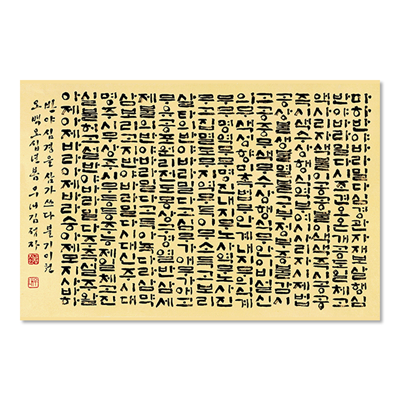 마하반야바라밀다심경관자재보살행심
반야바라밀다시조견오온개공도일체고
액사리자색불이공공불이색색즉시공공
즉시색수상행식역부여시사리자시제법
공상불생불멸불구부정부증불감시
고공중무색무수상행식무안이비설신
의무색성향미촉법무안계내지무의식계
무무명역무무명진내지무노사역무노사진
무고집멸도무지역무득이무소득고보리
살타의반야바라밀다고심무가애무가애고
무유공포원리전도몽상구경열반삼세
제불의반야바라밀다고득아뇩다라삼먁
삼보리고지반야바라밀다시대신주시대
명주시무상주시무등등주능제일체고진
실불허고설반야바라밀다주즉설주왈
아제아제바라아제바라승아제모지사바하
반야심경을 삼가 쓰다 불기이천
오백오십년 봄